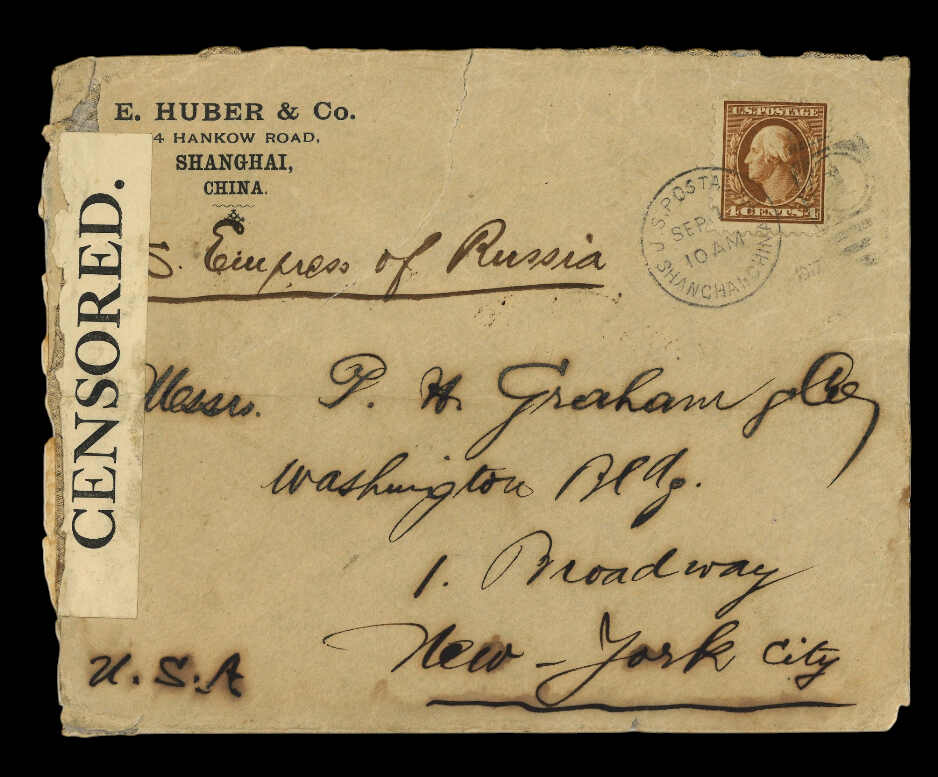 E. HUBER & Co.
4 HANKOW ROAD,
SHANGHAI,
CHINA.
CENSORED.
U.S. POSTAGE
4 CENTS 4
U.S. POSTAL
SEP
10 AM
SHANGHAI, CHINA
1917
S. Empress of Russia
Messrs. P. H. Graham & Co,
Washington Bldg.
1. Broadway
New-York City
U.S.A